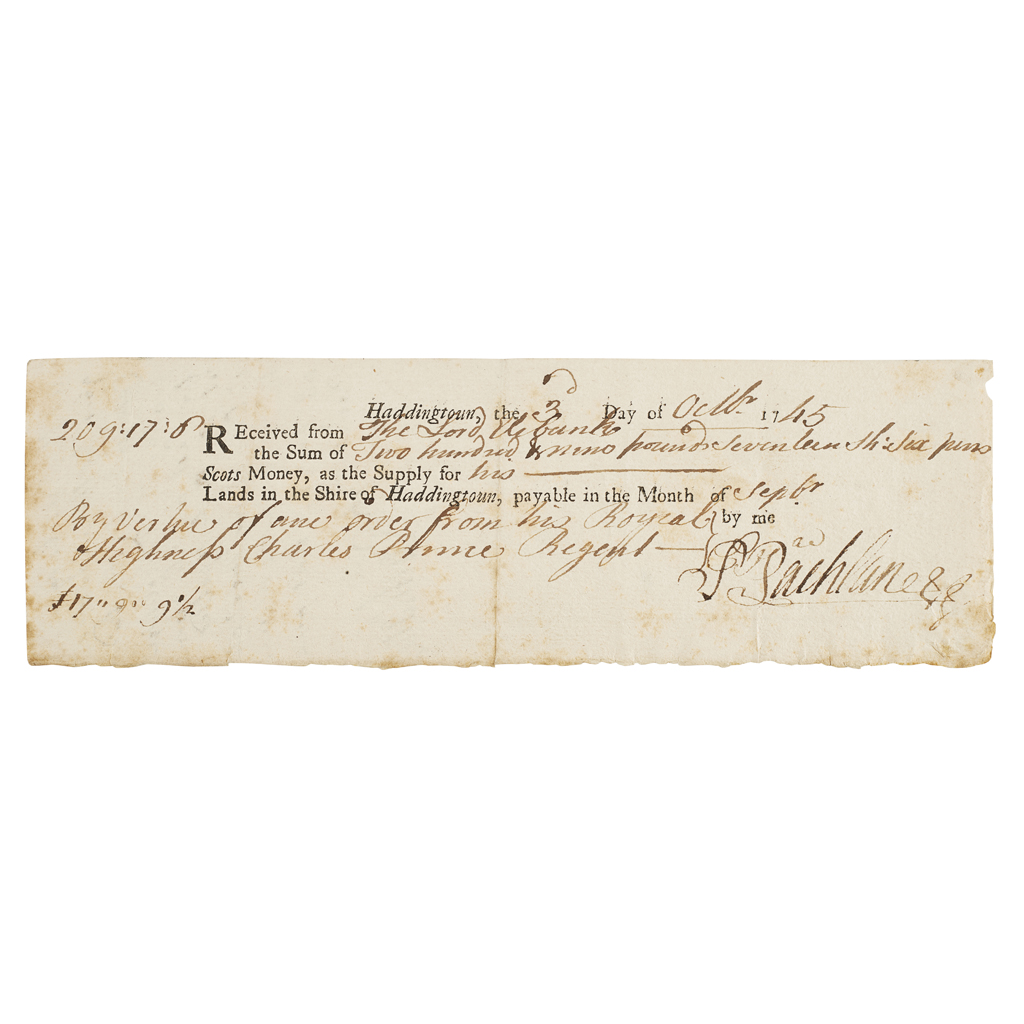 Haddingtoun, the 3d Day of Octbr 1745
209:17:6 REceived from The Lord Elibank
the Sum of Two hundred & nine pounds Seventeen Sh: Six pens
Scots Money, as the Supply for his
Lands in the Shire of Haddingtoun, payable in the Month of Sepbr
By Vertue of ane order from his Royeal by me
Highness Charles Prince Regent
£17 " 9 " 9 1/2